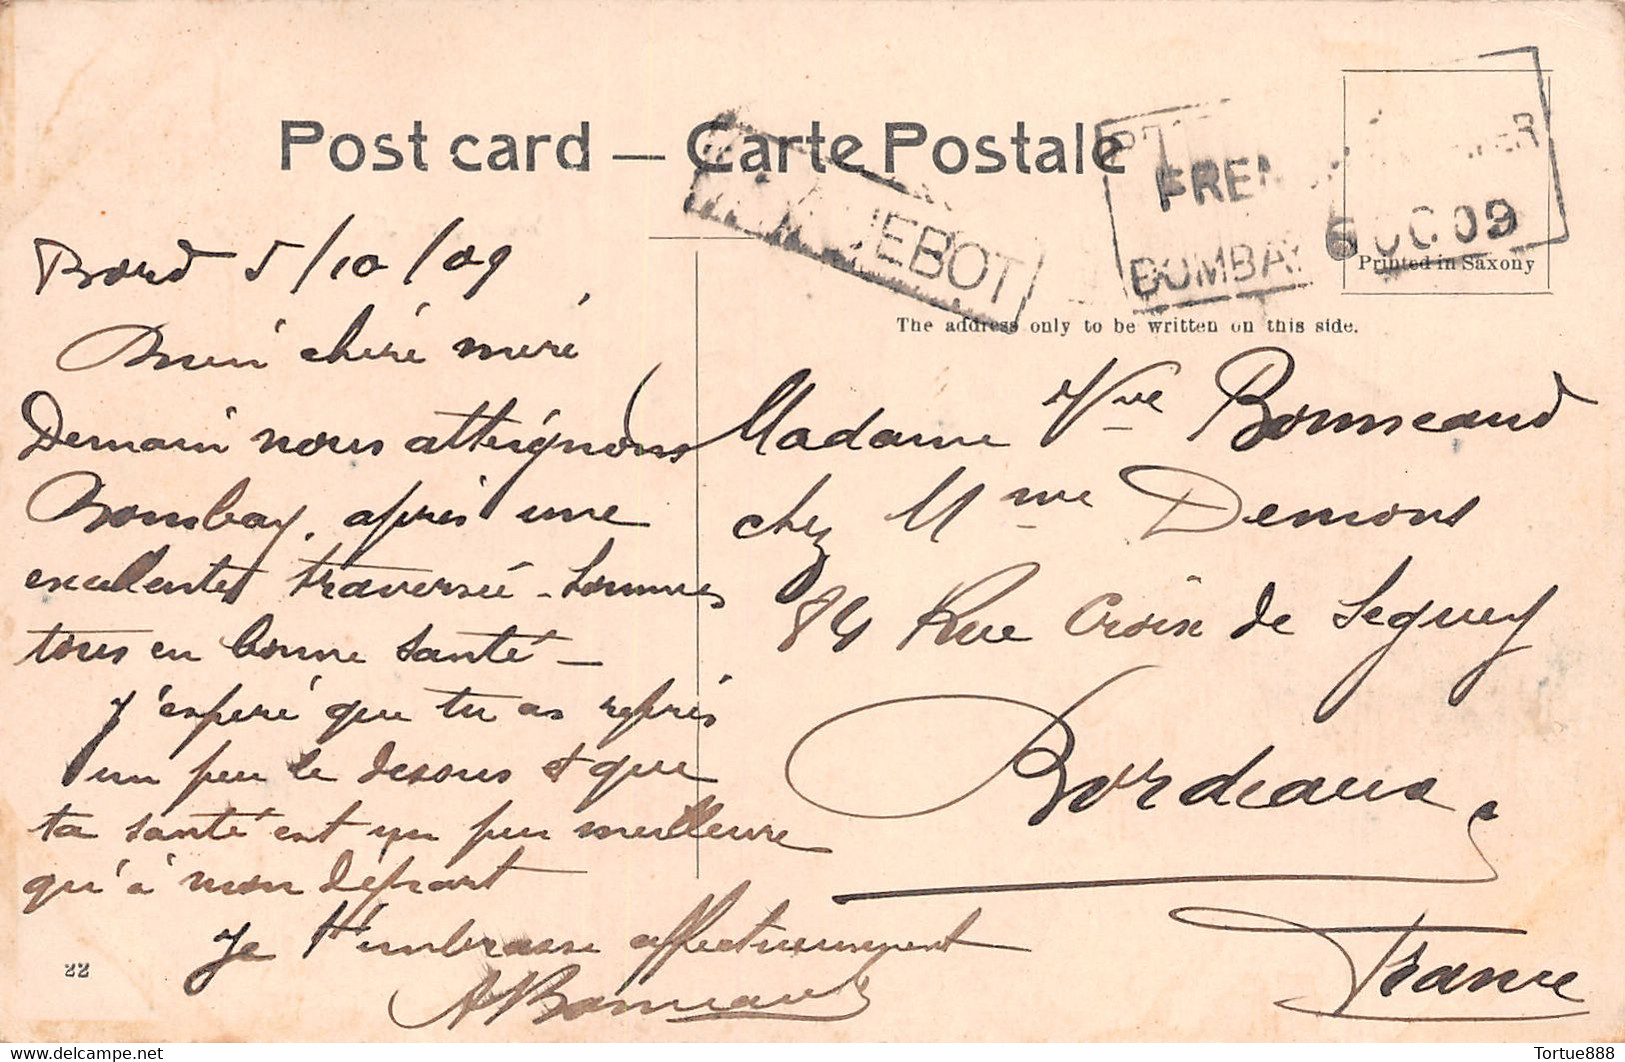 Post card — Carte Postale
PAQUEBOT
FRENCH
BOMBAY 6 OC 09
Printed in Saxony
The address only to be written on this side.
Bord 5/10/09
chéré méré
Demain nous atteignons
Bombay, après une
excelente traversée - Sommes
tous en bonne santé -
J'esperé que tu as repris
un peu le dessus et que
ta santé est un peu meilleure
qu'à mon départ
Je t'embrasse affectueusement
ABonneaud
22
Madame Vve Bonneaud
chez Mme Demons
84 Rue Croix de Seguey
Bordeaux
France
Tortue888